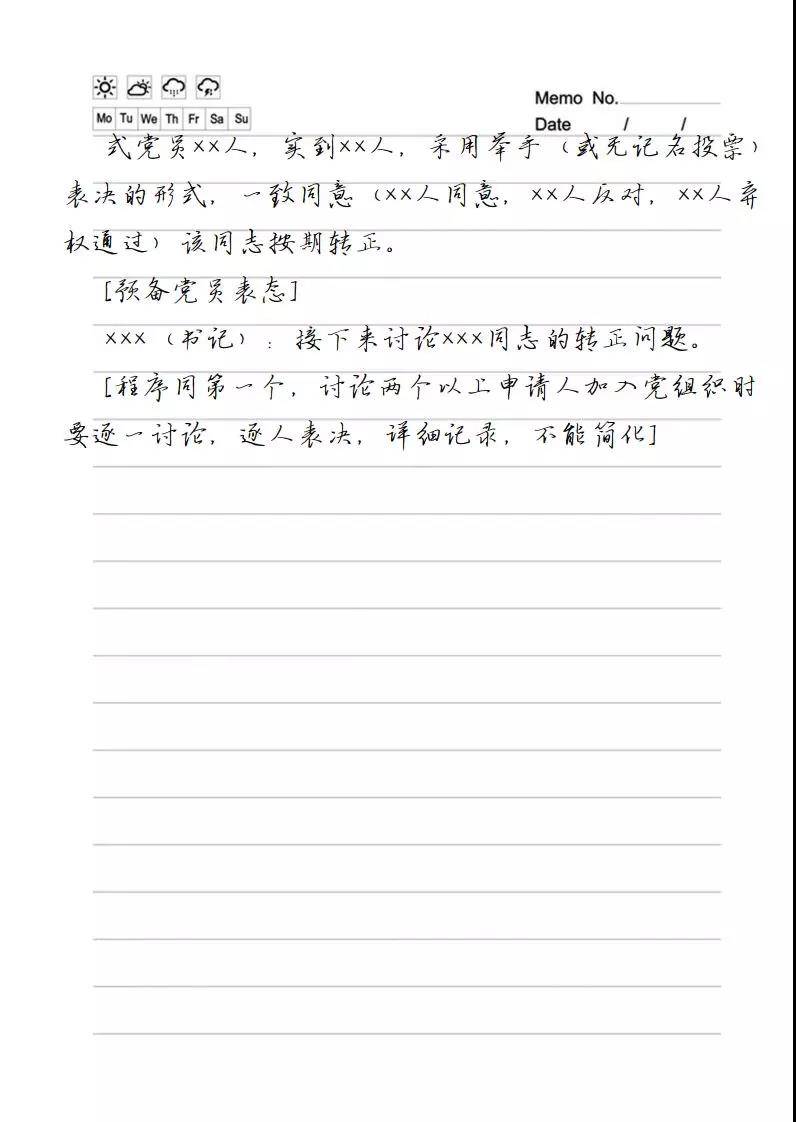 Memo No.
Mo Tu We Th Fr Sa Su
Date / /
式党员××人，实到××人，采用举手（或无记名投票）
表决的形式，一致同意（××人同意，××人反对，××人弃
权通过）该同志按期转正。
[预备党员表态]
×××（书记）：接下来讨论×××同志的转正问题。
[程序同第一个，讨论两个以上申请人加入党组织时
要逐一讨论，逐人表决，详细记录，不能简化]